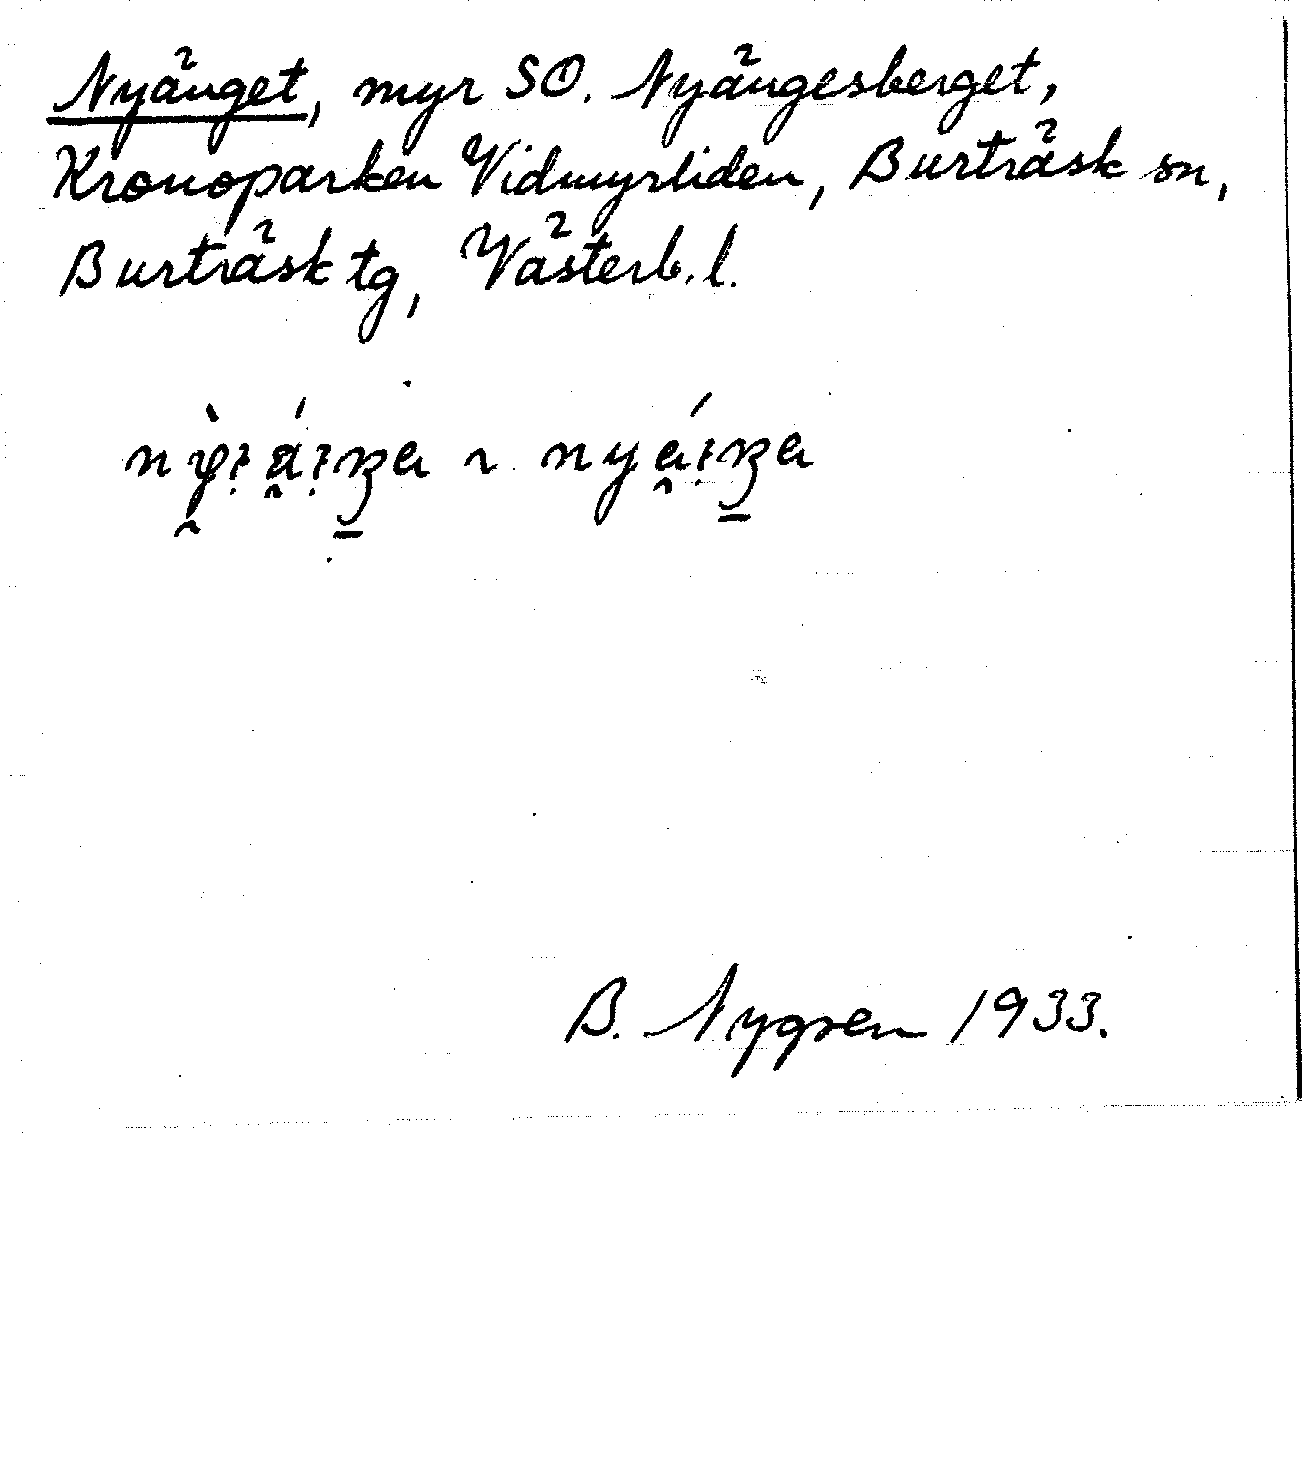 Nyänget, myr SO. Nyängesberget,
Kronoparken Vidmyrliden, Burträsk sn,
Burträsk tg, Västerb. l.
B. Nygren 1933.